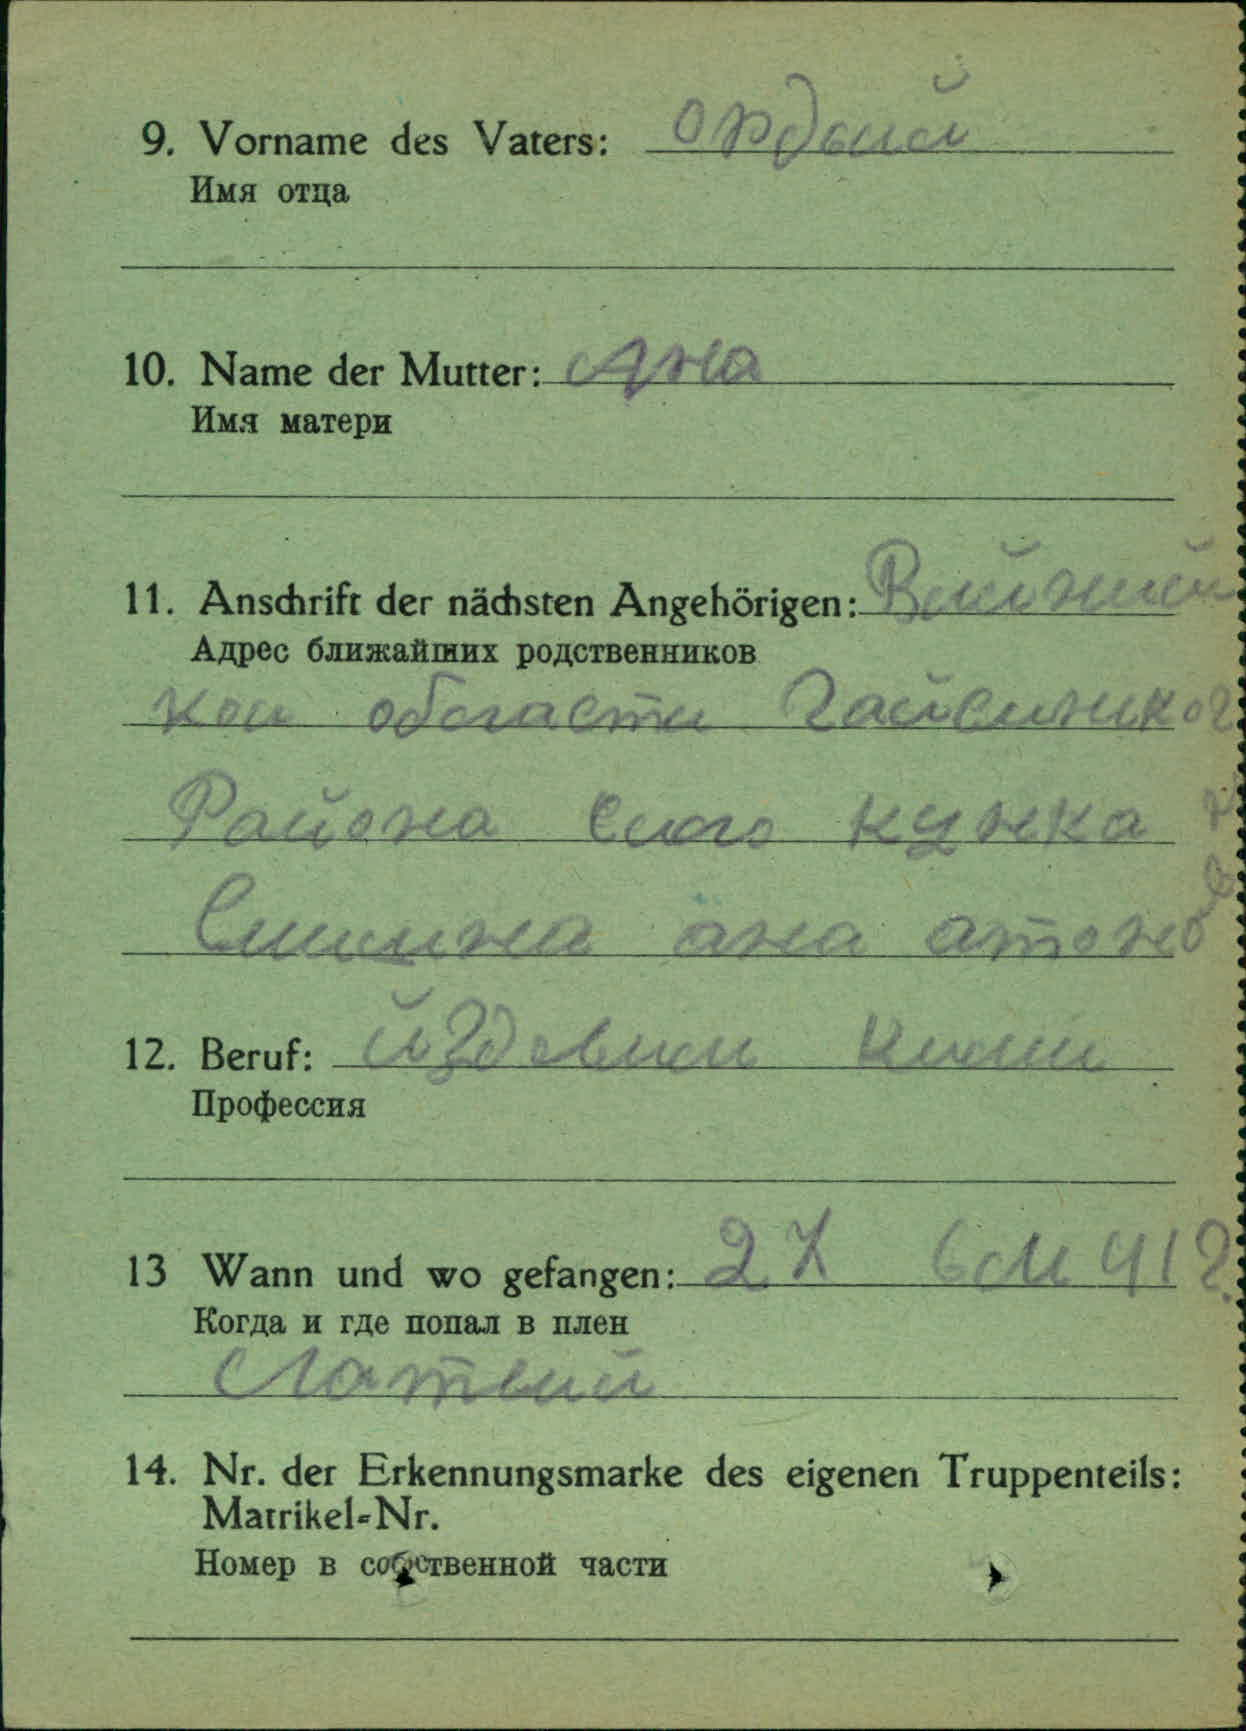 9. Vorname des Vaters: ордий
Имя отца
10. Name der Mutter: Ана
Имя матери
11. Anschrift der nächsten Angehörigen:
Адрес ближайших родственников
кои области Гайсинког
Района Сило кунка
ана атоно
12. Beruf:
Профессия
13 Wann und wo gefangen: 27 6М 41г.
Когда и где попал в плен
Латвии
14. Nr. der Erkennungsmarke des eigenen Truppenteils:
Matrikel-Nr.
Номер в собственной части